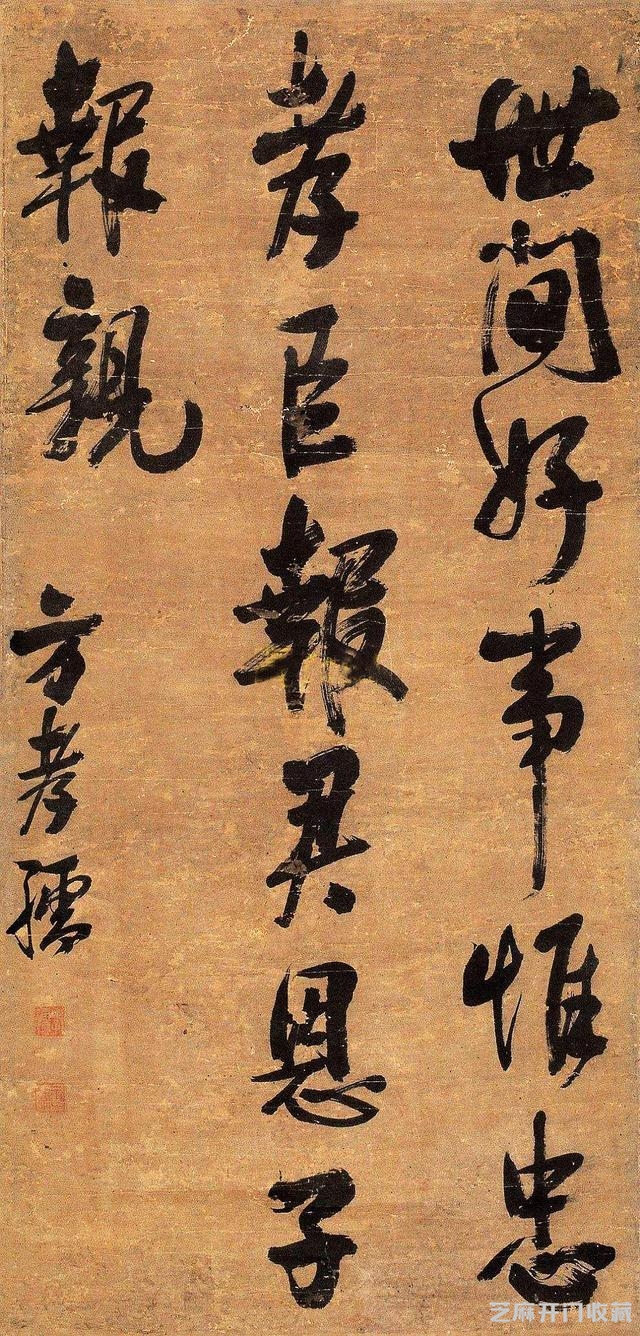 世間好事惟忠
孝臣報君恩子
報親
方孝孺
芝麻开门收藏